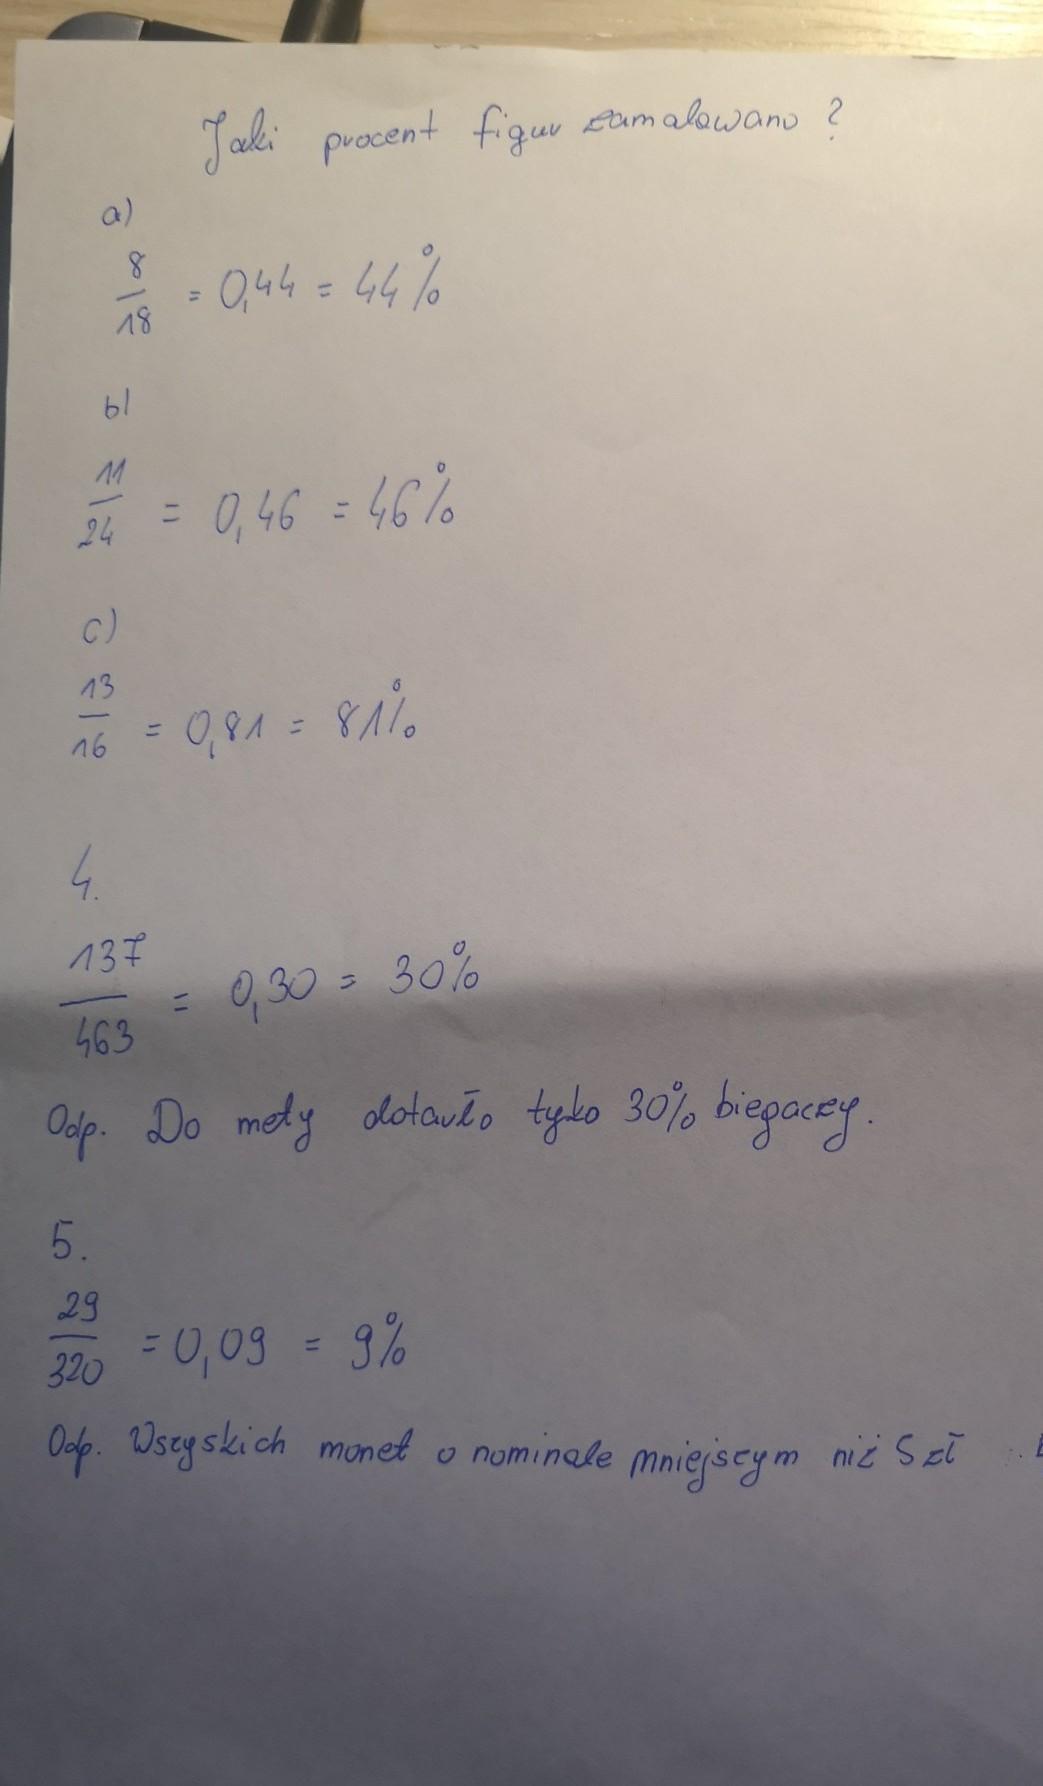 Jaki procent figur zamalowano?
a)
8/18 = 0,44 = 44%
b)
11/24 = 0,46 = 46%
c)
13/16 = 0,81 = 81%
4.
137/463 = 0,30 = 30%
Odp. Do mety dotarło tyko 30% biegaczy.
5.
29/320 = 0,09 = 9%
Odp. Wszyskich monet o nominale mniejszym niż 5 zł